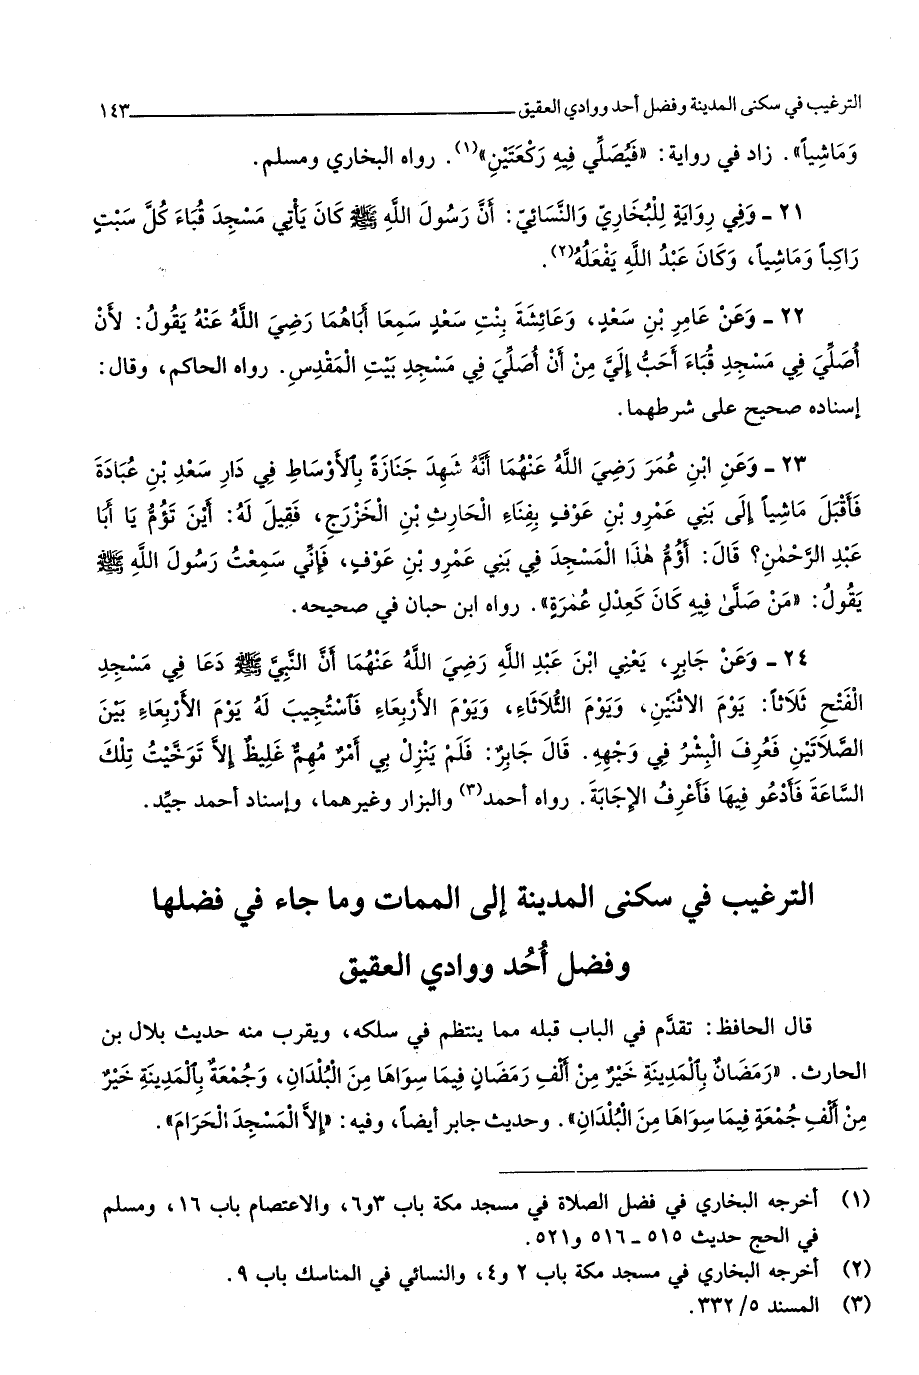 الترغيب في سكنى المدينة وفضل أحد ووادي العقيق ١٤٣
وَمَاشِياً». زاد في رواية: «فَيُصَلِّي فِيهِ رَكْعَتَيْنِ»(١). رواه البخاري ومسلم.
٢١ ـ وَفِي رِوَايَةٍ لِلْبُخَارِيِّ وَالنَّسَائِيِّ: أَنَّ رَسُولَ اللَّهِ ﷺ كَانَ يَأْتِي مَسْجِدَ قُبَاءَ كُلَّ سَبْتٍ
رَاكِباً وَمَاشِياً، وَكَانَ عَبْدُ اللَّهِ يَفْعَلُهُ(٢).
٢٢ ـ وَعَنْ عَامِرِ بْنِ سَعْدٍ، وَعَائِشَةَ بِنْتِ سَعْدٍ سَمِعَا أَبَاهُمَا رَضِيَ اللَّهُ عَنْهُ يَقُولُ: لأَنْ
أُصَلِّيَ فِي مَسْجِدِ قُبَاءَ أَحَبُّ إِلَيَّ مِنْ أَنْ أُصَلِّيَ فِي مَسْجِدِ بَيْتِ الْمَقْدِسِ. رواه الحاكم، وقال:
إسناده صحيح على شرطهما.
٢٣ ـ وَعَنِ ابْنِ عُمَرَ رَضِيَ اللَّهُ عَنْهُمَا أَنَّهُ شَهِدَ جَنَازَةً بِٱلأَوْسَاطِ فِي دَارِ سَعْدِ بْنِ عُبَادَةَ
فَأَقْبَلَ مَاشِياً إِلَى بَنِي عَمْرِو بْنِ عَوْفٍ بِفِنَاءِ الْحَارِثِ بْنِ الْخَزْرَجِ، فَقِيلَ لَهُ: أَيْنَ تَؤُمُّ يَا أَبَا
عَبْدِ الرَّحْمٰنِ؟ قَالَ: أَؤُمُّ هٰذَا الْمَسْجِدَ فِي بَنِي عَمْرِو بْنِ عَوْفٍ، فَإِنِّي سَمِعْتُ رَسُولَ اللَّهِ ﷺ
يَقُولُ: «مَنْ صَلَّىٰ فِيهِ كَانَ كَعِدْلِ عُمْرَةٍ». رواه ابن حبان في صحيحه.
٢٤ ـ وَعَنْ جَابِرٍ، يَعْنِي ابْنَ عَبْدِ اللَّهِ رَضِيَ اللَّهُ عَنْهُمَا أَنَّ النَّبِيَّ ﷺ دَعَا فِي مَسْجِدِ
الْفَتْحِ ثَلَاثاً: يَوْمَ الاثْنَيْنِ، وَيَوْمَ الثُّلَاثَاءِ، وَيَوْمَ الأَرْبِعَاءِ فَٱسْتُجِيبَ لَهُ يَوْمَ الأَرْبِعَاءِ بَيْنَ
الصَّلَاتَيْنِ فَعُرِفَ الْبِشْرُ فِي وَجْهِهِ. قَالَ جَابِرٌ: فَلَمْ يَنْزِلْ بِي أَمْرٌ مُهِمٌّ غَلِيظٌ إِلاَّ تَوَخَّيْتُ تِلْكَ
السَّاعَةَ فَأَدْعُو فِيهَا فَأَعْرِفُ الإِجَابَةَ. رواه أحمد(٣) والبزار وغيرهما، وإسناد أحمد جيِّد.
الترغيب في سكنى المدينة إلى الممات وما جاء في فضلها
وفضل أُحُد ووادي العقيق
قال الحافظ: تقدَّم في الباب قبله مما ينتظم في سلكه، ويقرب منه حديث بلال بن
الحارث. «رَمَضَانٌ بِٱلْمَدِينَةِ خَيْرٌ مِنْ أَلْفِ رَمَضَانٍ فِيمَا سِوَاهَا مِنَ الْبُلْدَانِ، وَجُمْعَةٌ بِٱلْمَدِينَةِ خَيْرٌ
مِنْ أَلْفِ جُمْعَةٍ فِيمَا سِوَاهَا مِنَ الْبُلْدَانِ». وحديث جابر أيضاً، وفيه: «إِلاَّ الْمَسْجِدَ الْحَرَامَ».
(١) أخرجه البخاري في فضل الصلاة في مسجد مكة باب ٣ و٦، والاعتصام باب ١٦، ومسلم
في الحج حديث ٥١٥ ـ ٥١٦ و٥٢١.
(٢) أخرجه البخاري في مسجد مكة باب ٢ و٤، والنسائي في المناسك باب ٩.
(٣) المسند ٥/ ٣٣٢.